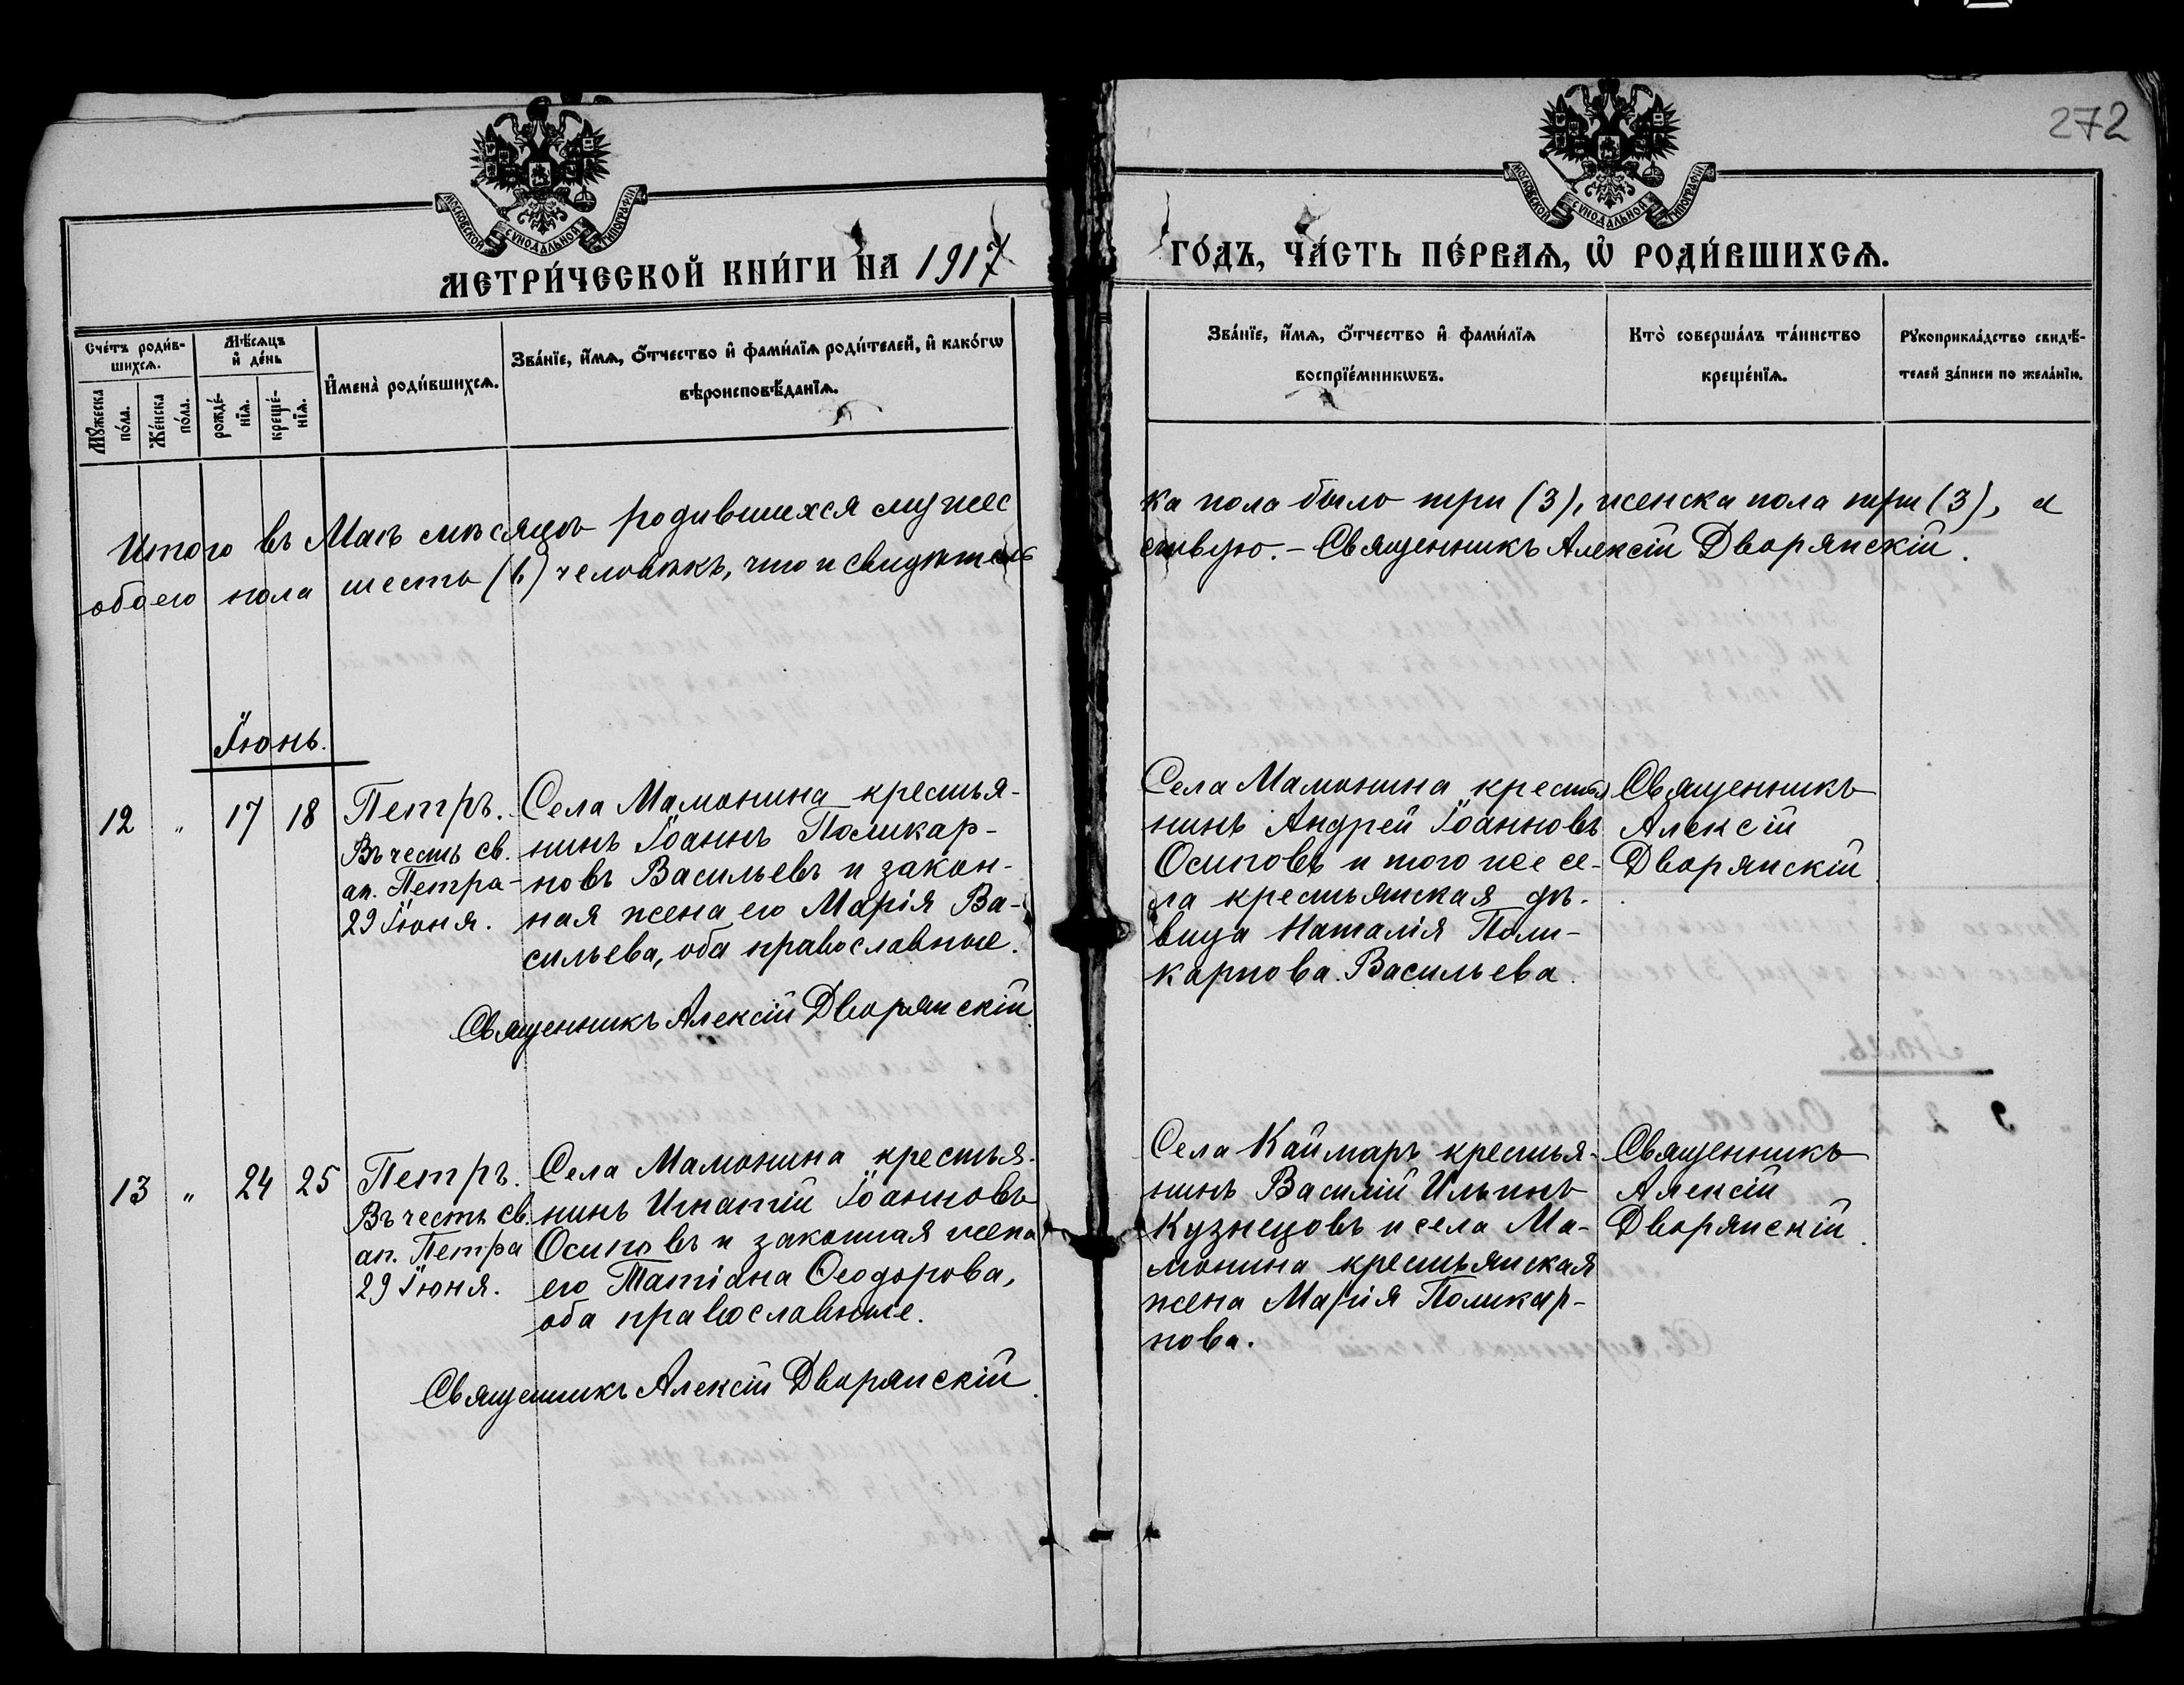 272
МОСКОВСКОЙ СѴНОДАЛЬНОЙ ТИПОГРАФІИ
МОСКОВСКОЙ СѴНОДАЛЬНОЙ ТИПОГРАФІИ
МЕТРИ́ЧЕСКОЙ КНИ́ГИ НА 1917
ГО́ДЪ, ЧА́СТЬ ПЕ́РВАѦ, Ѡ҆ РОДИ́ВШИХСѦ.
Сче́тъ роди́в-
шихсѧ.
Мꙋ́жеска
по́ла.
Же́нска
по́ла.
Мѣ́сѧцъ
и҆ де́нь
рожде́-
нїѧ.
креще́-
нїѧ.
И҆мена̀ роди́вшихсѧ.
Зва́нїе, и҆́мѧ, ѻ҆́тчество и҆ фами́лїѧ роди́телей, и҆ како́гѡ
вѣроисповѣ́данїѧ.
Зва́нїе, и҆́мѧ, ѻ҆́тчество и҆ фами́лїѧ
воспрїе́мникѡвъ.
Кто̀ соверша́лъ та́инство
креще́нїѧ.
Рꙋкоприкла́дство свидѣ́-
телей за́писи по жела́нїю.
Итого въ Маѣ мѣсяцѣ родившихся мужес
ка пола было три (3), женска пола три (3), а
обоего пола шесть (6) человѣкъ, что и свидѣтель
ствую. - Священникъ Алексій Дворянскій.
Іюнь.
12 " 17 18
Петръ.
Въ честь св.
ап. Петра
29 Іюня.
Села Мамонина крестья-
нинъ Іоаннъ Поликар-
повъ Васильевъ и закон-
ная жена его Марія Ва-
сильева, оба православные.
Священникъ Алексій Дворянскій
Села Мамонина крестья
нинъ Андрей Іоанновъ
Осиповъ и того же се-
ла крестьянская дѣ-
вица Наталія Поли-
карпова Васильева.
Священникъ
Алексій
Дворянскій
13 " 24 25
Петръ.
Въ честь св.
ап. Петра
29 Іюня.
Села Мамонина крестья-
нинъ Игнатій Іоанновъ
Осиповъ и законная жена
его Татіана Ѳеодорова,
оба православные.
Священникъ Алексій Дворянскій.
Села Каймаръ крестья-
нинъ Василій Ильинъ
Кузнецовъ и села Ма-
монина крестьянская
жена Марія Поликар-
пова.
Священникъ
Алексій
Дворянскій.